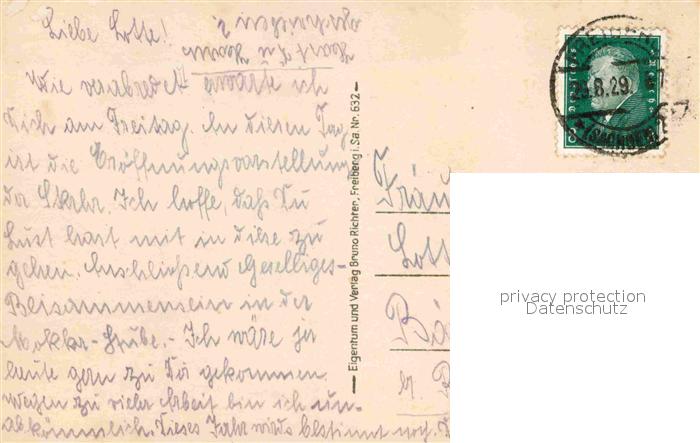 Liebe Lotte!
Wie verabredet erwarte ich
Dich am Freitag. An diesem Tag
ist die Eröffnungsvorstellung
der Skala. Ich hoffe, daß Du
Lust hast mit in diese zu
gehen. Anschließend Geselliges-
Beisammensein in der
Mokka-Stube. - Ich wäre ja
heute gern zu Dir gekommen.
wegen zu vieler Arbeit bin ich un-
abkömmlich. Dieses Jahr wirds bestimmt noch.
Eigentum und Verlag Bruno Richter, Freiberg i. Sa. Nr. 632
29.8.29.
Fräu
Lott
privacy protection
Datenschutz